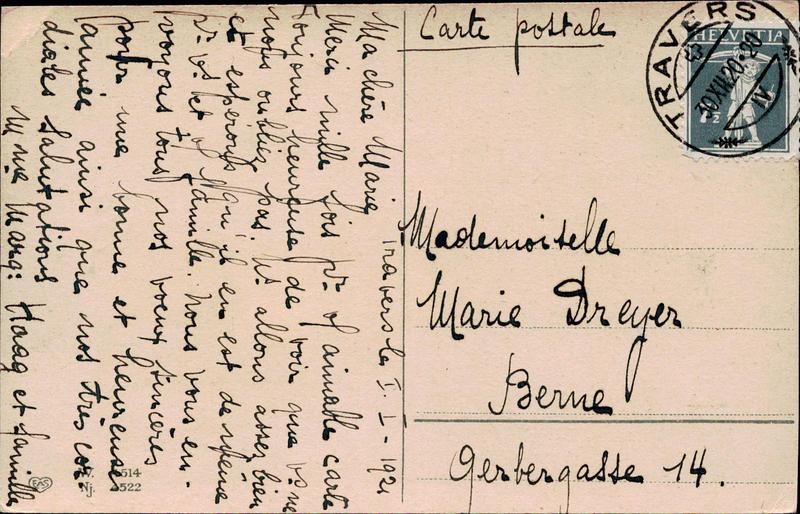 Carte postale
TRAVERS
30.XII.20-20
IV
HELVETIA
7½
Travers le I. I - 1921
Ma chère Marie
Merci mille fois pr l'aimable carte
Toujours heureuse de voir que vs ne
nous oubliez pas. Ns allons assez bien
et espérons qu'il en est de même
pr vs et famille. Nous vous en-
voyons tous nos voeux sincères
pour une bonne et heureuse
année ainsi que nos très cor-
diales salutations
Mme Marg: Haag et famille
Mademoiselle
Marie Dreyer
Berne
Gerbergasse 14.
EAS
514
Nj. 522